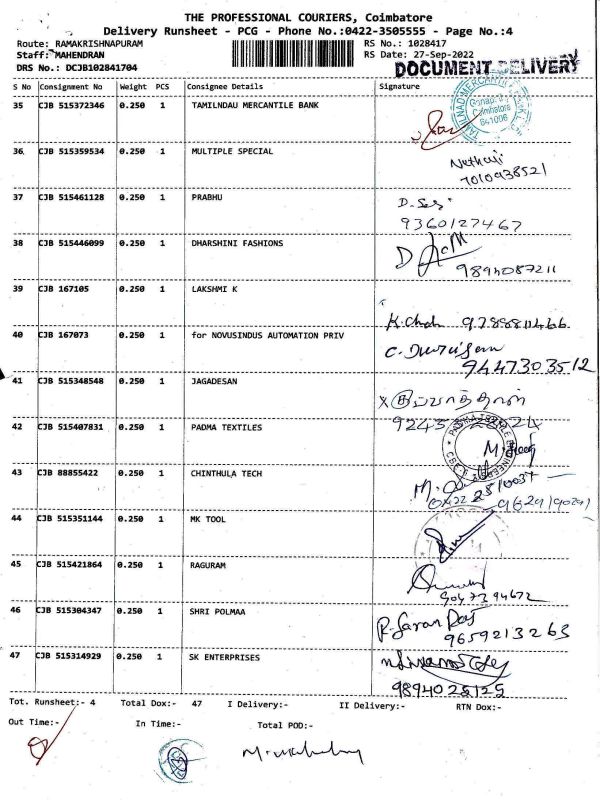 THE PROFESSIONAL COURIERS, Coimbatore
Delivery Runsheet - PCG - Phone No.:0422-3505555 - Page No.:4
Route: RAMAKRISHNAPURAM RS No.: 1028417
Staff: MAHENDRAN RS Date: 27-Sep-2022
DRS No.: DCJB102841704 DOCUMENT DELIVERY
S No Consignment No Weight PCS Consignee Details Signature
35 CJB 515372346 0.250 1 TAMILNDAU MERCANTILE BANK
Coimbatore
641006
36 CJB 515359534 0.250 1 MULTIPLE SPECIAL
Nethaji
7010938521
37 CJB 515461128 0.250 1 PRABHU
9360127467
38 CJB 515446099 0.250 1 DHARSHINI FASHIONS
9894087211
39 CJB 167105 0.250 1 LAKSHMI K
40 CJB 167073 0.250 1 for NOVUSINDUS AUTOMATION PRIV
9447303512
41 CJB 515348548 0.250 1 JAGADESAN
42 CJB 515407831 0.250 1 PADMA TEXTILES
43 CJB 88855422 0.250 1 CHINTHULA TECH
44 CJB 515351144 0.250 1 MK TOOL
45 CJB 515421864 0.250 1 RAGURAM
46 CJB 515304347 0.250 1 SHRI POLMAA
9659213263
47 CJB 515314929 0.250 1 SK ENTERPRISES
9894028125
Tot. Runsheet:- 4 Total Dox:- 47 I Delivery:- II Delivery:- RTN Dox:-
Out Time:- In Time:- Total POD:-